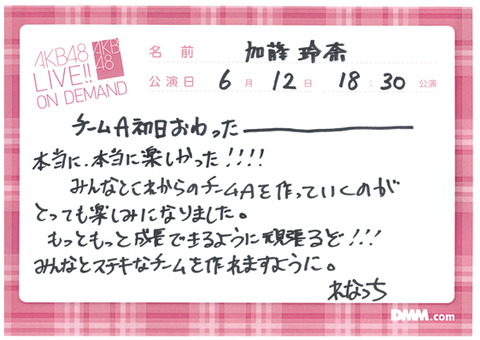 AKB48
LIVE!!
ON DEMAND
AKB
48
名前 加藤 玲奈
公演日 6月 12日 18:30 公演
チームA初日おわったーーー
本当に、本当に楽しかった!!!!
みんなとこれからのチームAを作っていくのが
とっても楽しみになりました。
もっともっと成長できるように頑張るぞ!!!
みんなとステキなチームを作れますように。
れなっち
DMM.com